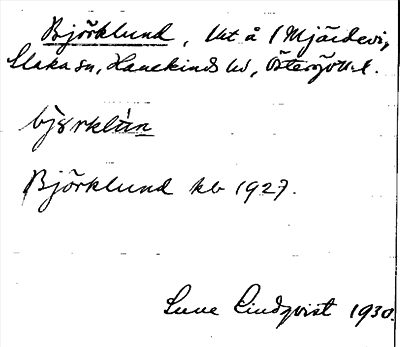 Björklund, lht å 1 Mjärdevi,
Slaka sn, Hanekinds hd, Östergötl. l.
bjərklàn
Björklund kb 1927.
Sune Lindqvist 1930.